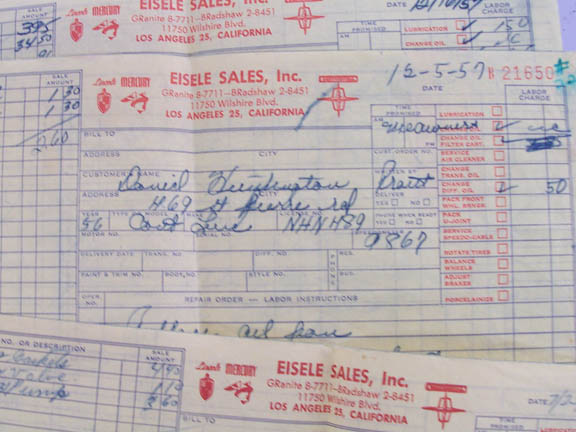 395
34.50
EISELE SALES, Inc.
GRanite 8-7711—BRadshaw 2-8451
11750 Wilshire Blvd.
LOS ANGELES 25, CALIFORNIA
TIME PROMISED
AM
DATE
LABOR CHARGE
LUBRICATION
CHANGE OIL
SALE AMOUNT
1 30
1 30
2 60
Lincoln MERCURY
EISELE SALES, Inc.
GRanite 8-7711—BRadshaw 2-8451
11750 Wilshire Blvd.
LOS ANGELES 25, CALIFORNIA
12-5-57
DATE
21650
LABOR CHARGE
BILL TO
ADDRESS CITY
CUSTOMER'S NAME
Daniel Huntington
ADDRESS CITY
469 St Pierre Rd
YEAR TYPE LICENSE NO.
56 Cont NHN489
MOTOR NO.
9867
DELIVERY DATE TRAN. NO. DIFF. NO. PHONES RES.
PAINT & TRIM NO. BODY NO. STYLE NO. BUS.
OPER. NO. REPAIR ORDER — LABOR INSTRUCTIONS
oil pan
TIME PROMISED
AM
PM
WRITTEN BY
DELIVER
YES NO
PHONE WHEN READY
YES NO
LUBRICATION
CHANGE OIL
FILTER CART.
SERVICE AIR CLEANER
CHANGE TRANS. OIL
CHANGE DIFF. OIL 50
PACK FRONT WHL. BRNGS
PACK U-JOINT
SERVICE SPEEDO-CABLE
ROTATE TIRES
BALANCE WHEELS
ADJUST BRAKES
PORCELAINIZE
NO. OR DESCRIPTION
SALE AMOUNT
Gaskets
Valve
Pump
Lincoln MERCURY
EISELE SALES, Inc.
GRanite 8-7711—BRadshaw 2-8451
11750 Wilshire Blvd.
LOS ANGELES 25, CALIFORNIA
BILL TO
DATE
TIME PROMISED
LUBRICATION